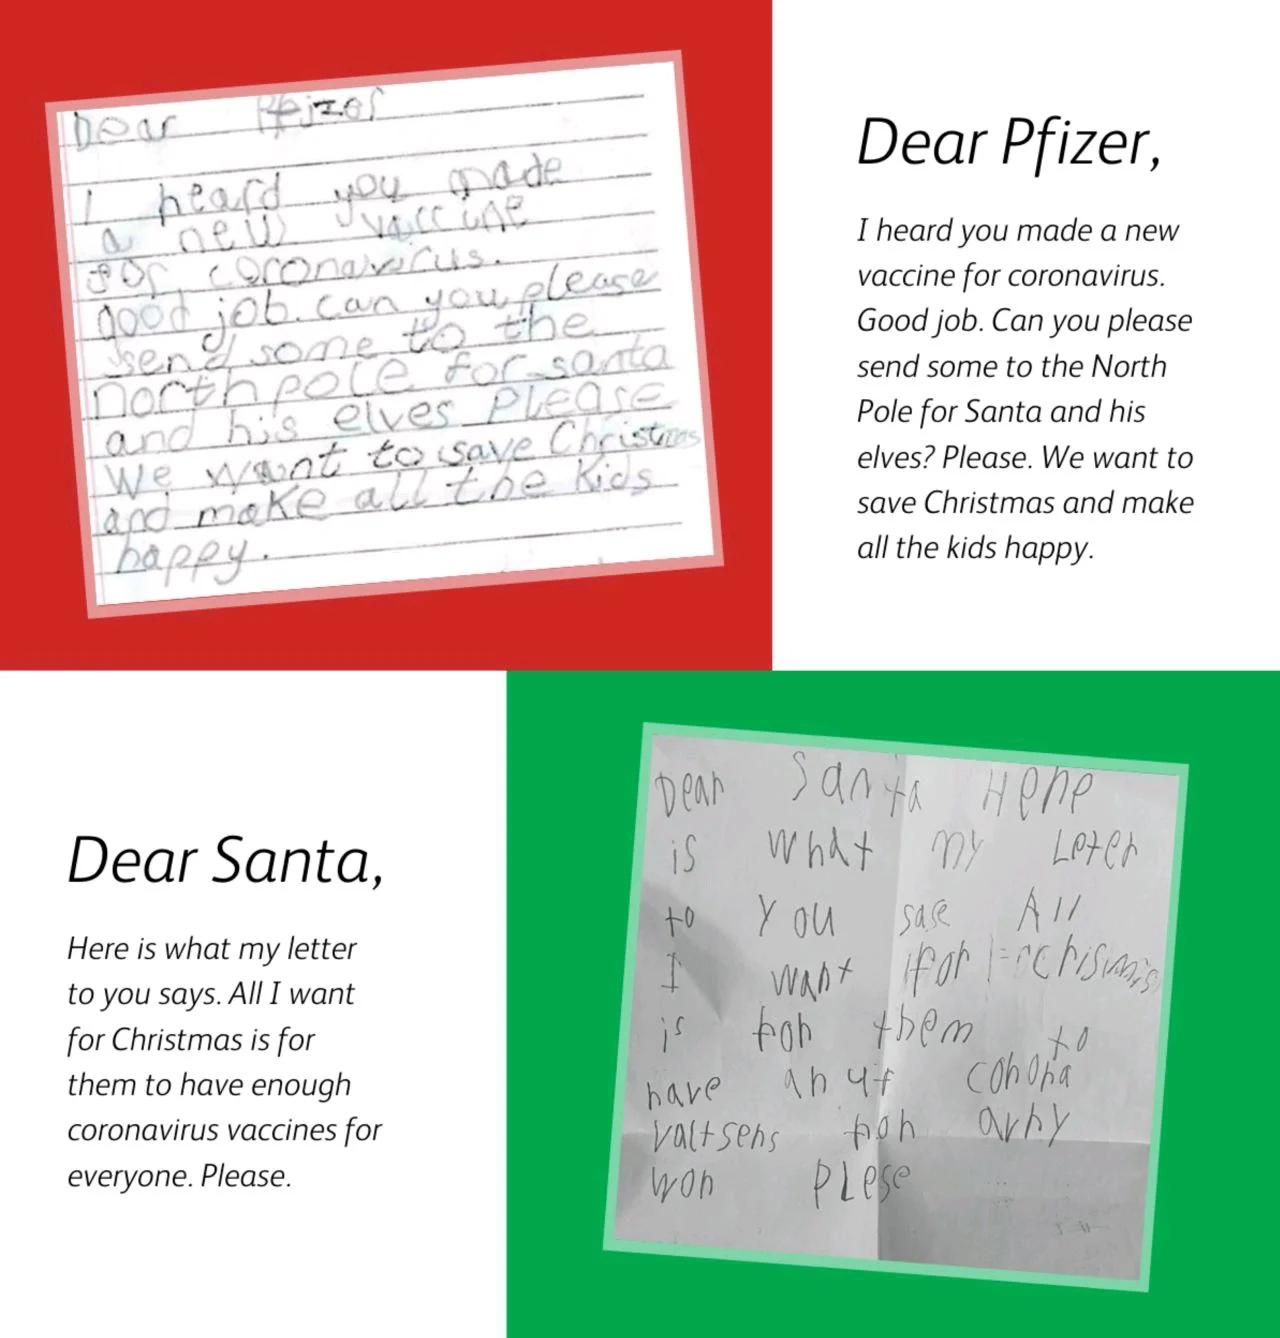 Dear Pfizer
I heard you made
a new vaccine
for coronavirus.
good job. can you please
send some to the
northpole for santa
and his elves Please
We want to save Christmas
and make all the kids
happy.
Dear Pfizer,
I heard you made a new
vaccine for coronavirus.
Good job. Can you please
send some to the North
Pole for Santa and his
elves? Please. We want to
save Christmas and make
all the kids happy.
Dear Santa,
Here is what my letter
to you says. All I want
for Christmas is for
them to have enough
coronavirus vaccines for
everyone. Please.
Dear Santa Here
is what my Leter
to you sase All
I want for
is for them to
have an uf corona
valtsens for avry
won Plese